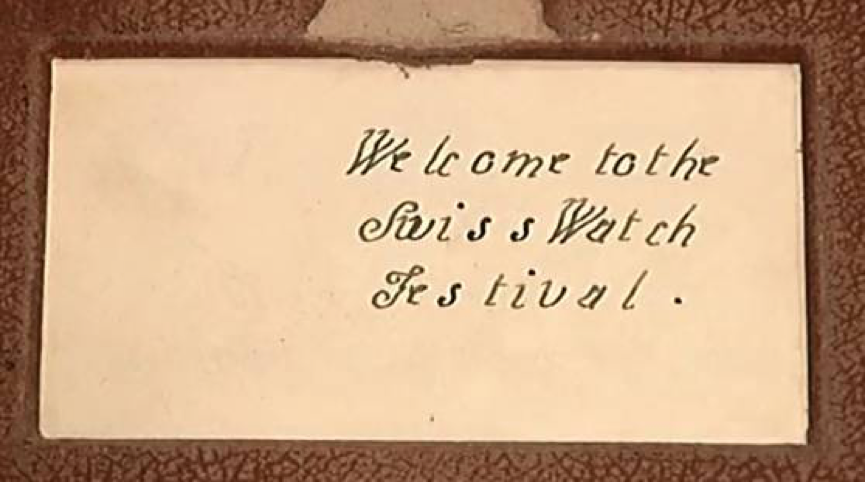 Welcome to the
Swiss Watch
Festival.